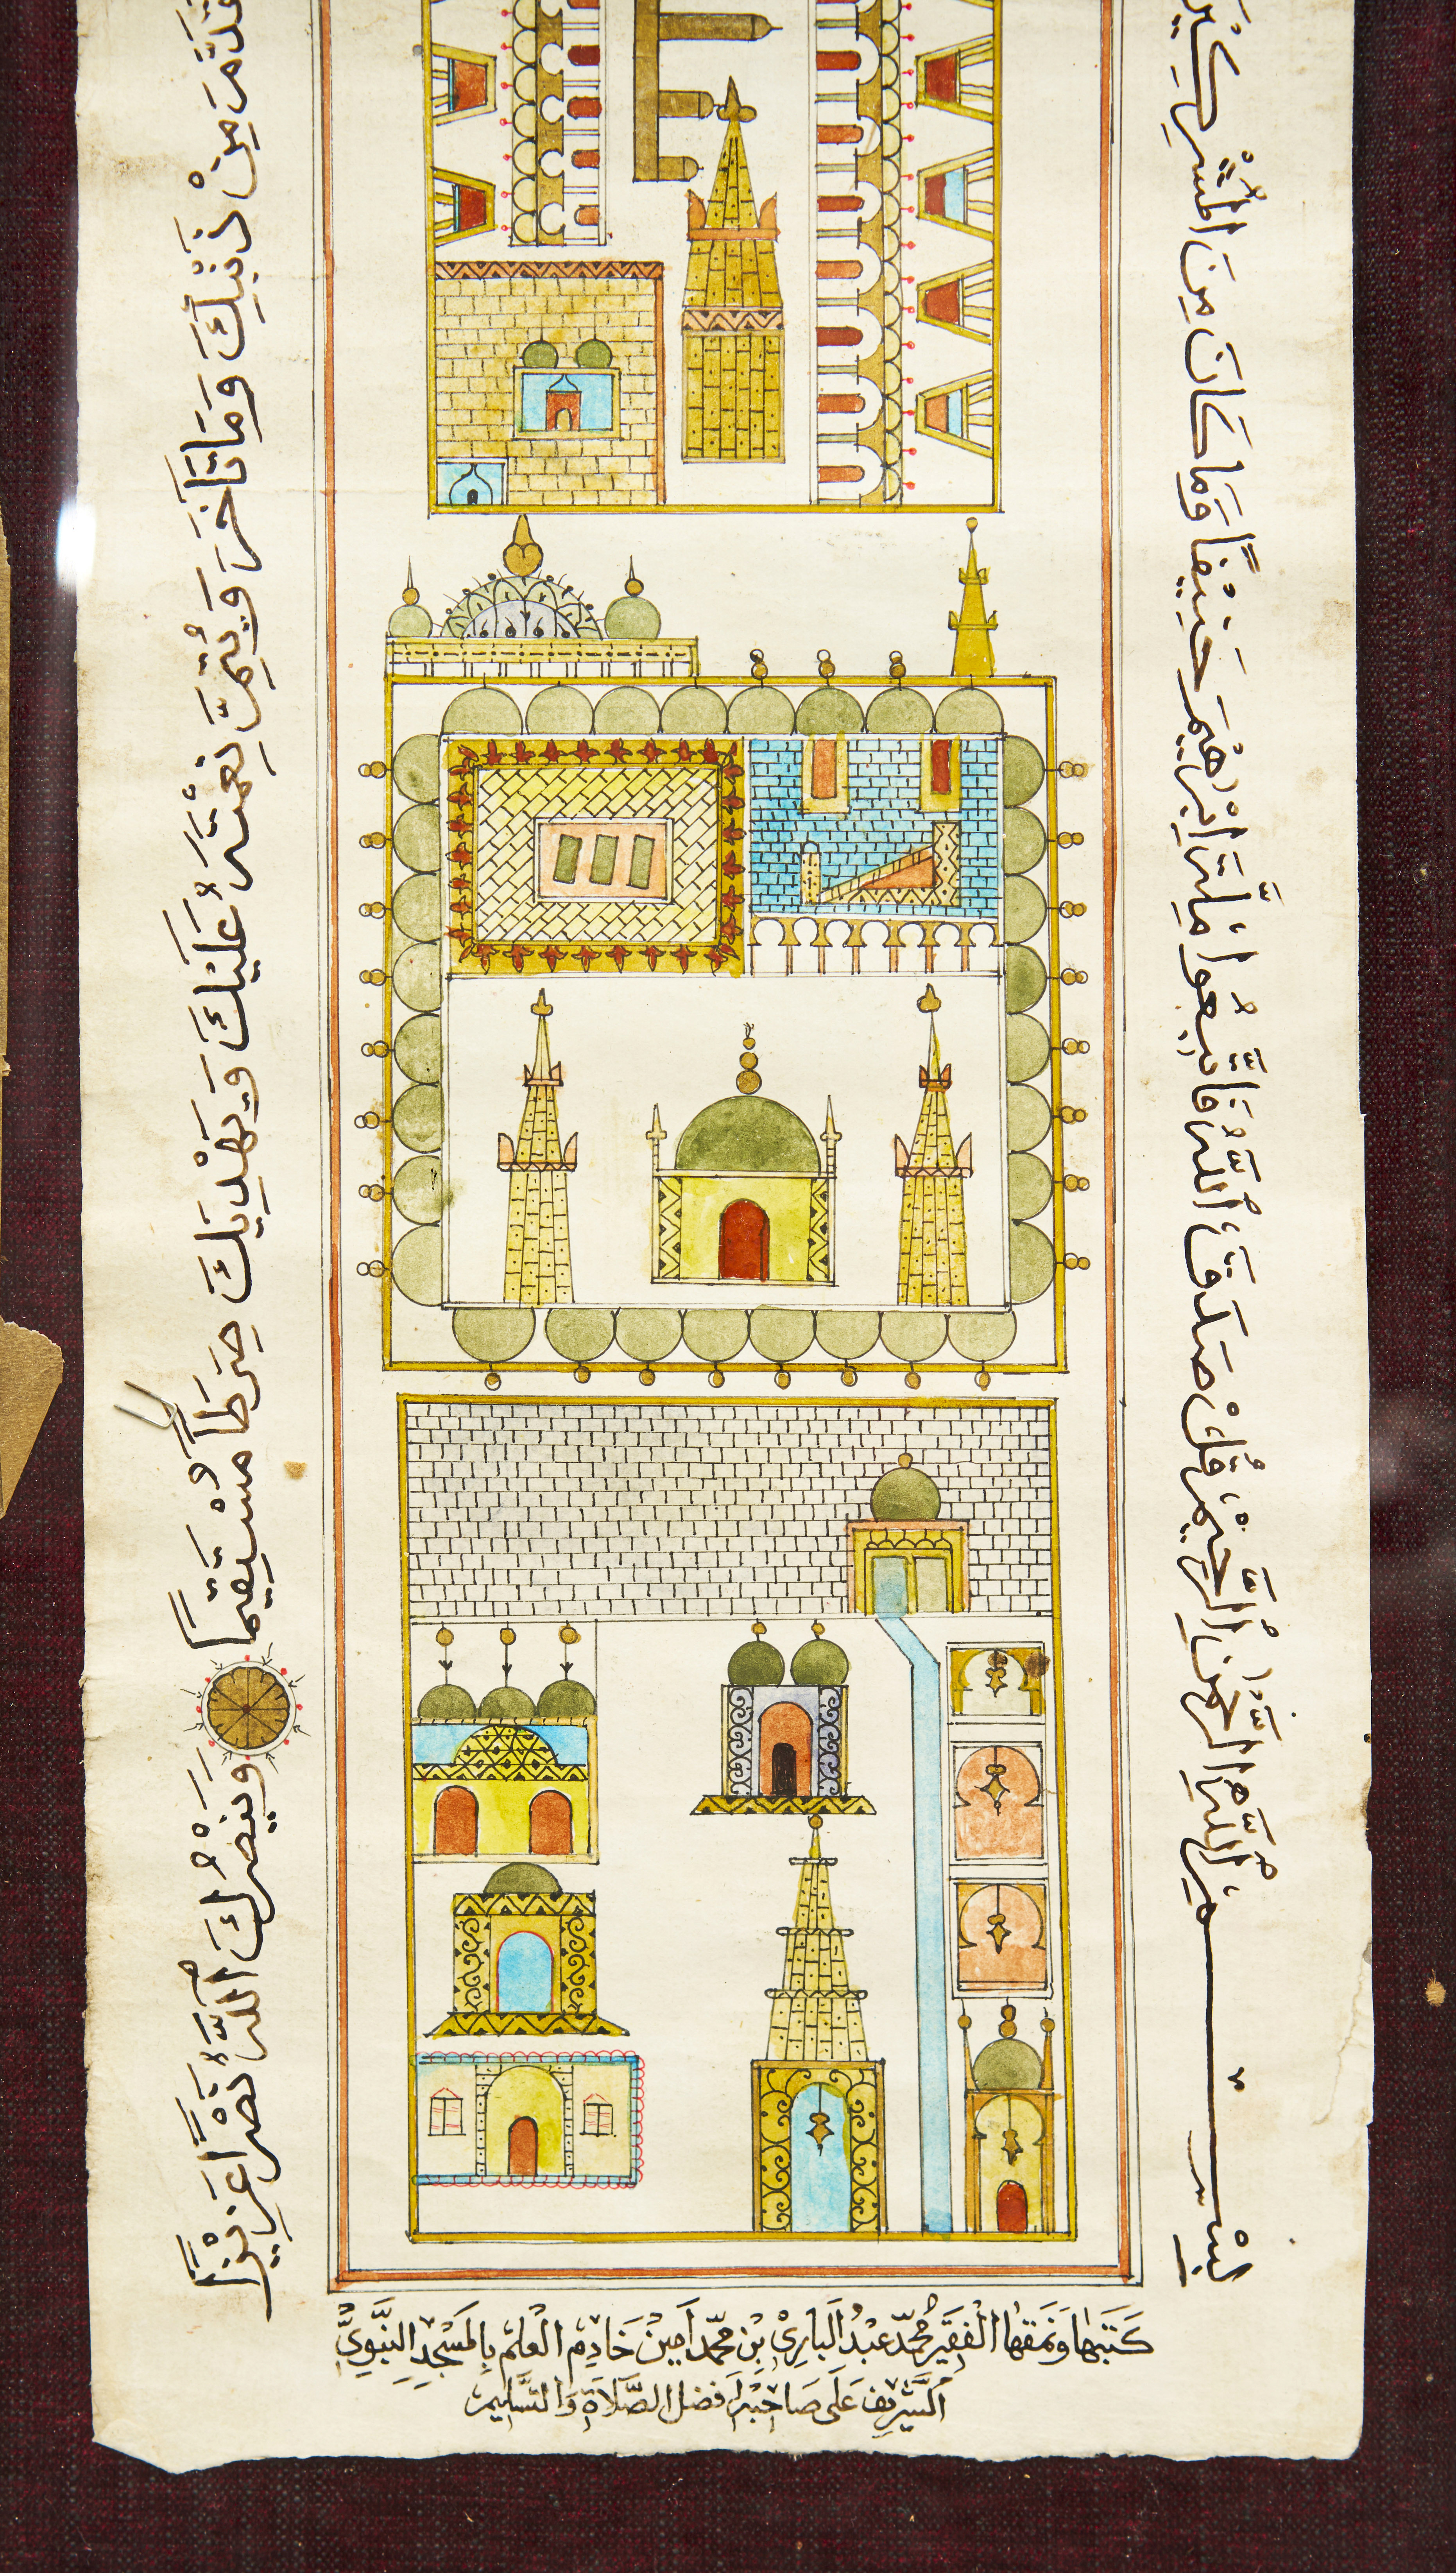 بِسْمِ اللَّهِ الرَّحْمٰنِ الرَّحِيْمِ قُلْ صَدَقَ اللَّهُ فَاتَّبِعُوا مِلَّةَ اِبْرٰهِيْمَ حَنِيْفًا وَمَا كَانَ مِنَ الْمُشْرِكِيْنَ
مِنْ ذَنْبِكَ وَمَا تَاَخَّرَ وَيُتِمَّ نِعْمَتَهُ عَلَيْكَ وَيَهْدِيَكَ صِرَاطًا مُسْتَقِيْمًا وَيَنْصُرَكَ اللَّهُ نَصْرًا عَزِيْزًا
كَتَبَهَا وَنَمَقَهَا الْفَقِيْرُ مُحَمَّدُ عَبْدُ الْبَارِيْ بِنْ مُحَمَّدْ اَمِيْنْ خَادِمِ الْعِلْمِ بِالْمَسْجِدِ النَّبَوِيِّ
اَلشَّرِيْفِ عَلَى صَاحِبِهِ اَفْضَلِ الصَّلَاةِ وَالتَّسْلِيْمِ